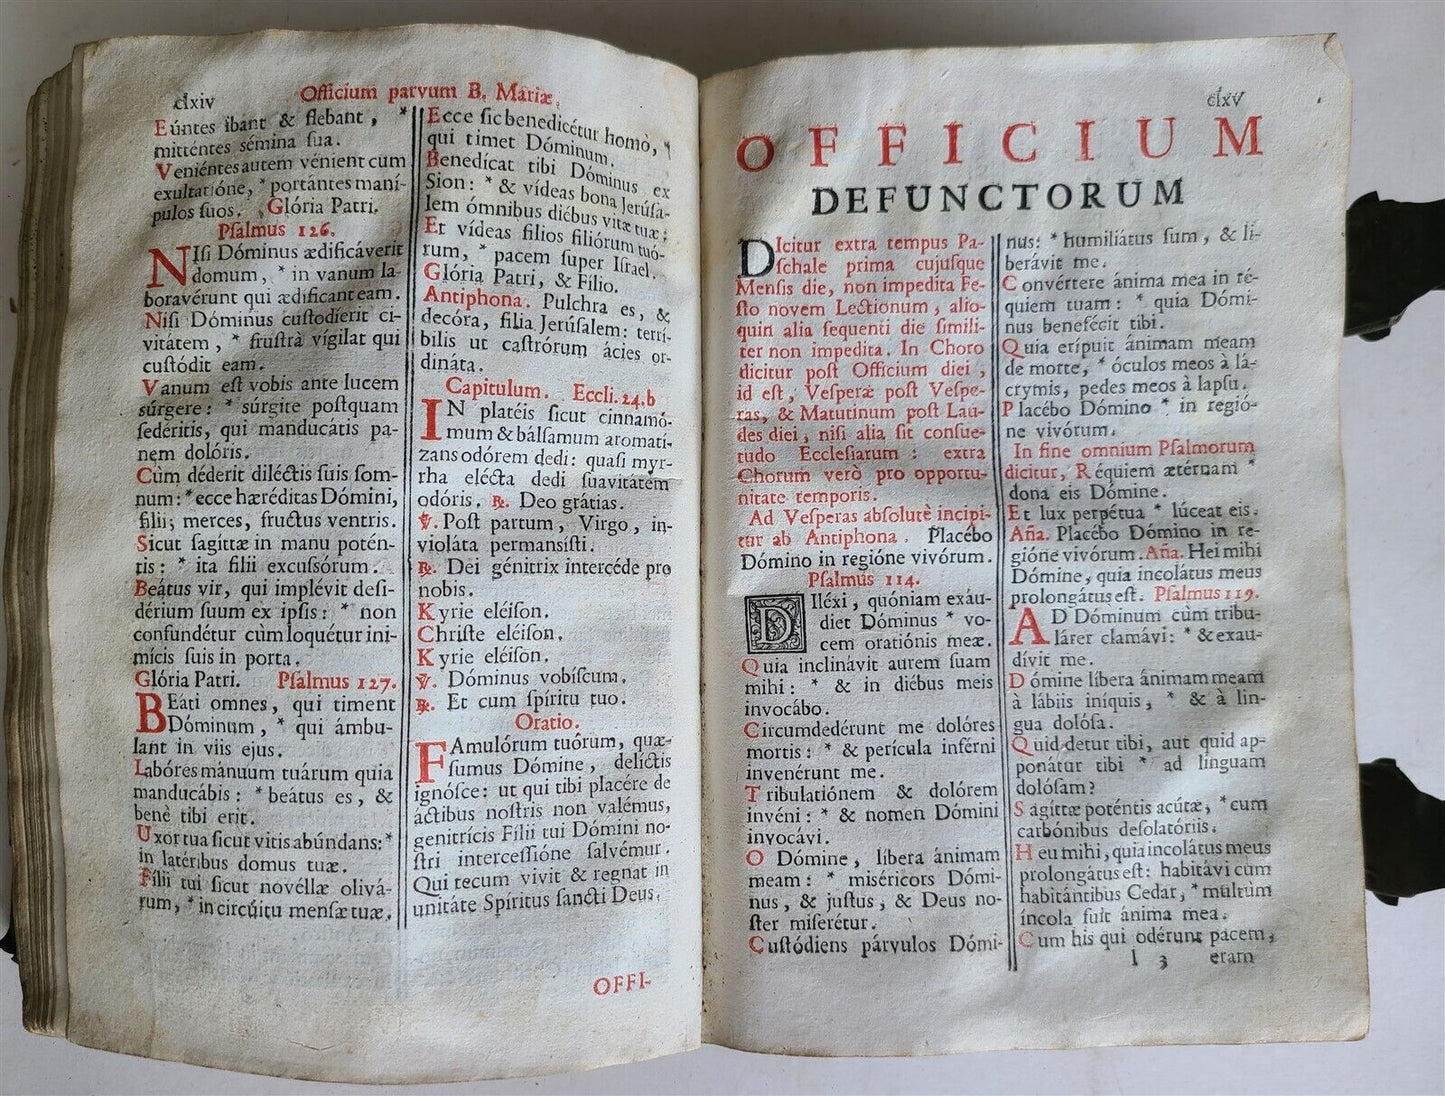 clxiv
Officium parvum B. Mariæ.
Eúntes ibant & flebant, *
mitténtes sémina sua.
Veniéntes autem vénient cum
exultatióne, * portántes maní-
pulos suos. Glória Patri.
Pſalmus 126.
NIſi Dóminus ædificáverit
domum, * in vanum la-
boravérunt qui ædificant eam.
Niſi Dóminus cuſtodíerit ci-
vitátem, * fruſtrà vígilat qui
cuſtódit eam.
Vanum eſt vobis ante lucem
súrgere: * súrgite poſtquam
ſedéritis, qui manducátis pa-
nem dolóris.
Cùm déderit diléctis ſuis ſom-
num: * ecce hæréditas Dómini,
filii; merces, fructus ventris.
Sicut ſagíttæ in manu potén-
tis: * ita filii excuſſórum.
Beátus vir, qui implévit deſi-
dérium ſuum ex ipſis: * non
confundétur cùm loquétur ini-
mícis ſuis in porta.
Glória Patri. Pſalmus 127.
BEáti omnes, qui timent
Dóminum, * qui ámbu-
lant in viis ejus.
Labóres mánuum tuárum quia
manducábis: * beátus es, &
benè tibi erit.
Uxor tua ſicut vitis abúndans: *
in latéribus domus tuæ.
Fílii tui ſicut novéllæ olivá-
rum, * in circúitu menſæ tuæ.
Ecce ſic benedicétur homò, *
qui timet Dóminum.
Benedícat tibi Dóminus ex
Sion: * & vídeas bona Jerúſa-
lem ómnibus diébus vitæ tuæ:
Et vídeas fílios filiórum tuó-
rum, * pacem ſuper Iſrael.
Glória Patri, & Fílio.
Antiphona. Pulchra es, &
decóra, fília Jerúſalem: terrí-
bilis ut caſtrórum ácies or-
dináta.
Capitulum. Eccli. 24. b
IN platéis ſicut cinnamó-
mum & bálſamum aromatí-
zans odórem dedi: quaſi myr-
rha elécta dedi ſuavitátem
odóris. ℟. Deo grátias.
℣. Poſt partum, Virgo, in-
violáta permansíſti.
℟. Dei génitrix intercéde pro
nobis.
Kyrie eléiſon.
Chriſte eléiſon.
Kyrie eléiſon.
℣. Dóminus vobíſcum.
℟. Et cum ſpíritu tuo.
Oratio.
FAmulórum tuórum, quæ-
ſumus Dómine, delíctis
ignóſce: ut qui tibi placére de
áctibus noſtris non valémus,
genitrícis Fílii tui Dómini no-
ſtri interceſſióne ſalvémur.
Qui tecum vivit & regnat in
unitáte Spíritus ſancti Deus.
OFFI-
clxv
OFFICIUM
DEFUNCTORUM
DIcitur extra tempus Pa-
ſchale prima cujuſque
Menſis die, non impedita Fe-
ſto novem Lectionum, alio-
quin alia ſequenti die ſimili-
ter non impedita. In Choro
dicitur poſt Officium diei,
id eſt, Veſperæ poſt Veſpe-
ras, & Matutinum poſt Lau-
des diei, niſi alia ſit conſue-
tudo Eccleſiarum: extra
Chorum verò pro opportu-
nitate temporis.
Ad Veſperas abſolutè incipi-
tur ab Antiphona. Placébo
Dómino in regióne vivórum.
Pſalmus 114.
DIléxi, quóniam exáu-
diet Dóminus * vo-
cem oratiónis meæ.
Quia inclinávit aurem ſuam
mihi: * & in diébus meis
invocábo.
Circumdedérunt me dolóres
mortis: * & perícula inférni
invenérunt me.
Tribulatiónem & dolórem
invéni: * & nomen Dómini
invocávi.
O Dómine, líbera ánimam
meam: * miséricors Dómi-
nus, & juſtus, & Deus no-
ſter miſerétur.
Cuſtódiens párvulos Dómi-
nus: * humiliátus ſum, & li-
berávit me.
Convértere ánima mea in ré-
quiem tuam: * quia Dómi-
nus benefécit tibi.
Quia erípuit ánimam meam
de morte, * óculos meos à lá-
crymis, pedes meos à lapſu.
Placébo Dómino * in regió-
ne vivórum.
In fine omnium Pſalmorum
dicitur, Réquiem ætérnam *
dona eis Dómine.
Et lux perpétua * lúceat eis.
Aña. Placébo Dómino in re-
gióne vivórum. Aña. Hei mihi
Dómine, quia incolátus meus
prolongátus eſt. Pſalmus 119.
AD Dóminum cùm tribu-
lárer clamávi: * & exau-
dívit me.
Dómine líbera ánimam meam
à lábiis iníquis, * & à lin-
gua dolóſa.
Quid detur tibi, aut quid ap-
ponátur tibi * ad linguam
dolóſam?
Sagíttæ poténtis acútæ, * cum
carbónibus deſolatóriis.
Heu mihi, quia incolátus meus
prolongátus eſt: habitávi cùm
habitántibus Cedar, * multùm
íncola fuit ánima mea.
Cum his qui odérunt pacem,
l 3 eram